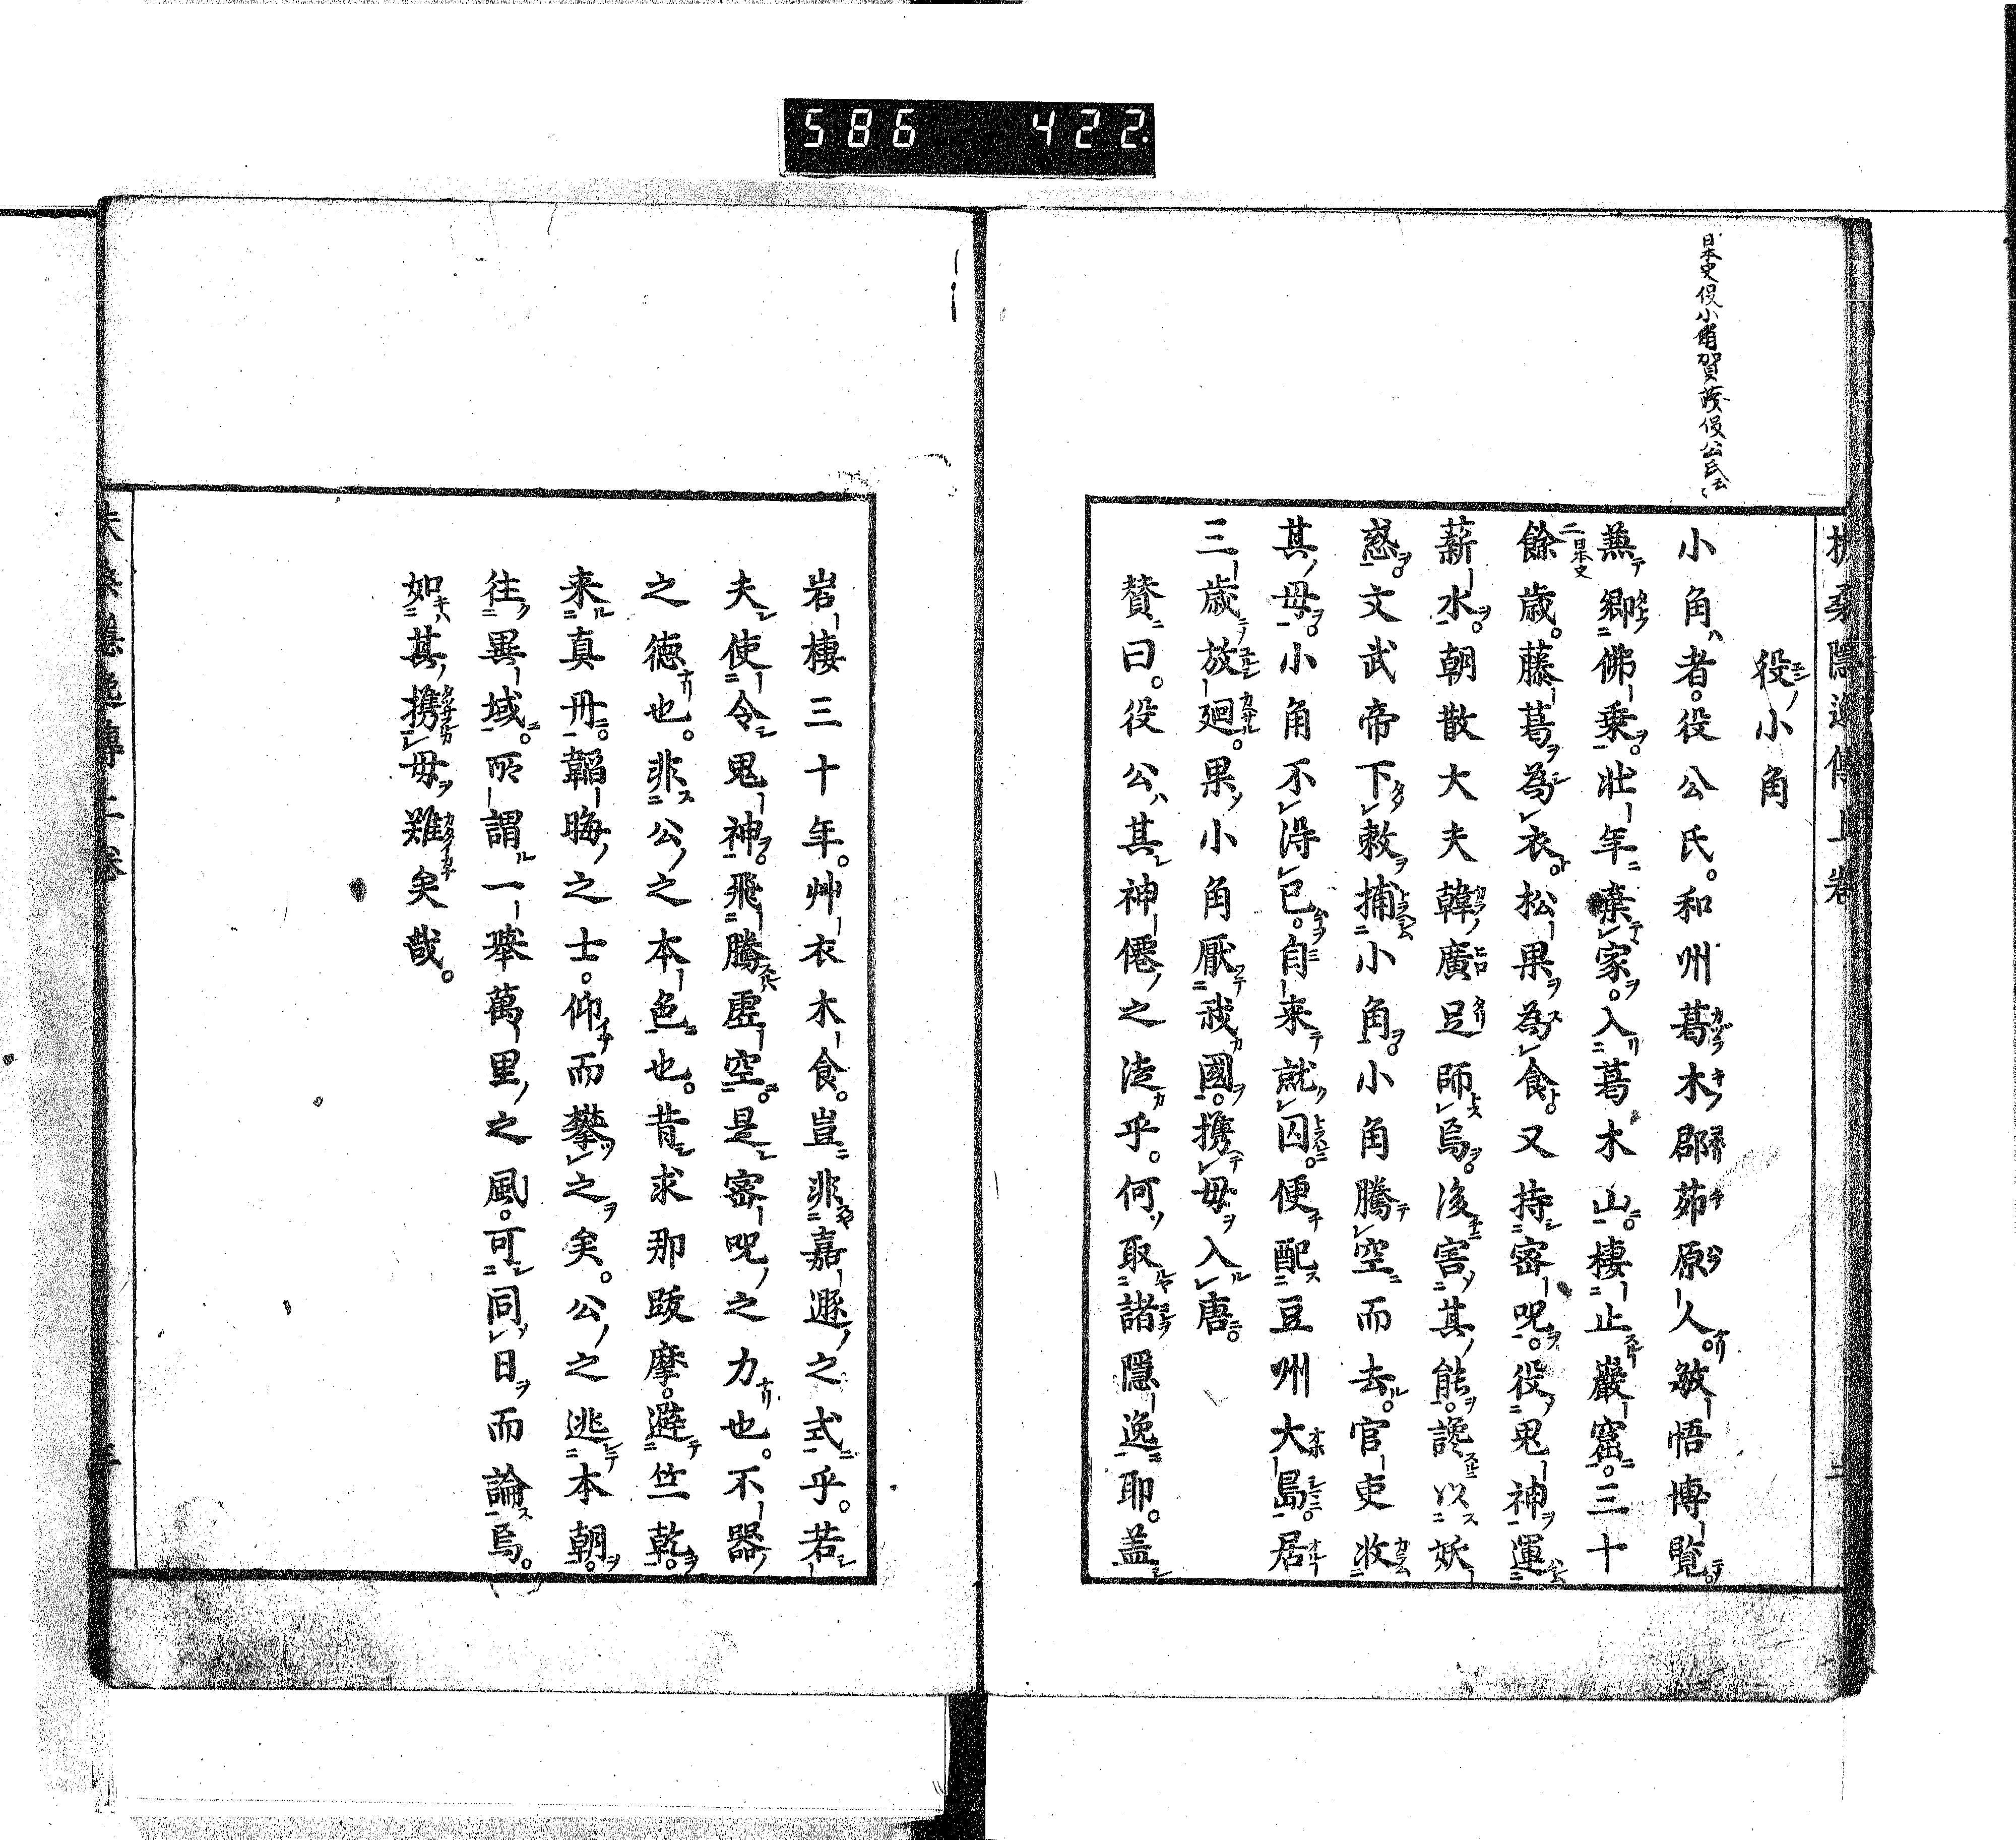 586 422
日本史役小角賀茂役公氏云
扶桑隱逸傳上卷 二
役小角
小角者。役公氏。和州葛木郡茆原人。敏悟博覧。
兼郷佛乗。壮年棄家。入葛木山。棲止巖窟。三十
餘歳。藤葛為衣。松果為食。又持密呪。役鬼神運
薪水。朝散大夫韓廣足師焉。後害其能。讒以妖
惑。文武帝下敕捕小角。小角騰空而去。官吏收
其母。小角不得已。自来就囚。便配豆州大島。居
三歳放廻。果小角厭我國。携母入唐。
賛曰。役公其神僊之徒乎。何取諸隱逸耶。盖
岩棲三十年。艸衣木食。豈非嘉遯之式乎。若
夫使令鬼神。飛騰虚空。是密呪之力也。不器
之徳也。非公之本色也。昔求那跋摩。避竺乾。
来真丹。韜晦之士。仰而攀之矣。公之逃本朝。
往異域。所謂一舉萬里之風。可同日而論焉。
如其携母難矣哉。